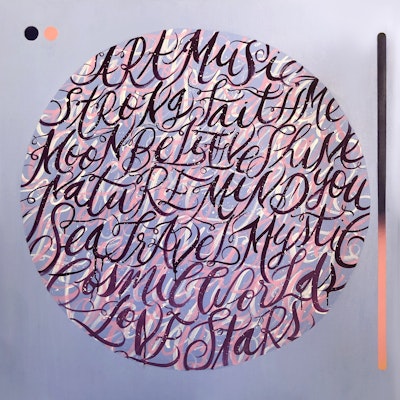 ART MUSIC
STRONG faith ME
MOON BELIEVE Shine
NATURE MIND YOU
Sea TRAVEL Mystic
Cosmic Worlds
LOVE STARS